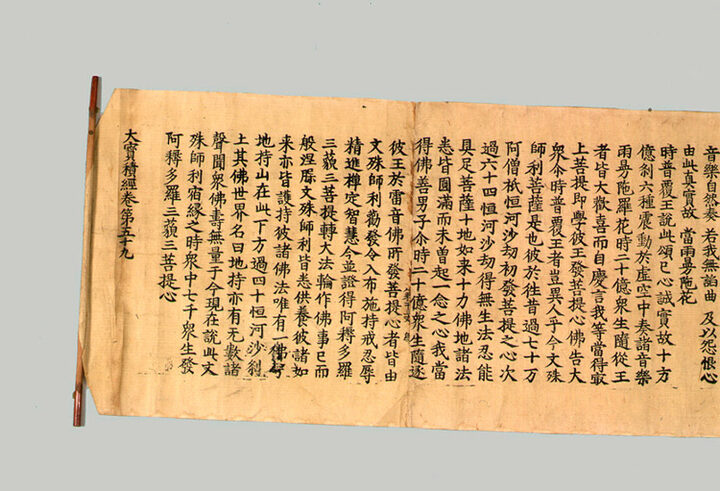 音樂自然奏 若我無諂曲 及以怨恨心
由此真實故 當雨曼陁花
時普覆王說此頌已心誠實故十方
億剎六種震動於虛空中奏諸音樂
雨曼陁羅花時二十億衆生隨從王
者皆大歡喜而自慶言我等當得㝡
上菩提即學彼王發菩提心佛告大
衆尒時普覆王者豈異人乎今文殊
師利菩薩是也彼於往昔過七十万
阿僧祇恒河沙劫初發菩提之心次
過六十四恒河沙劫得無生法忍能
具足菩薩十地如来十力佛地諸法
悉皆圓滿而未曽起一念之心我當
得佛善男子尒時二十億衆生隨逐
彼王於雷音佛所發菩提心者皆由
文殊師利勸發令入布施持戒忍辱
精進禪定智慧今並證得阿耨多羅
三藐三菩提轉大法輪作佛事已而
般涅槃文殊師利皆悉供養彼諸如
来亦皆護持彼諸佛法唯有一佛号
地持山在此下方過四十恒河沙剎
土其佛世界名曰地持亦有无數諸
聲聞衆佛壽無量于今現在說此文
殊師利宿緣之時衆中七千衆生發
阿耨多羅三藐三菩提心
大寶積經卷第五十九